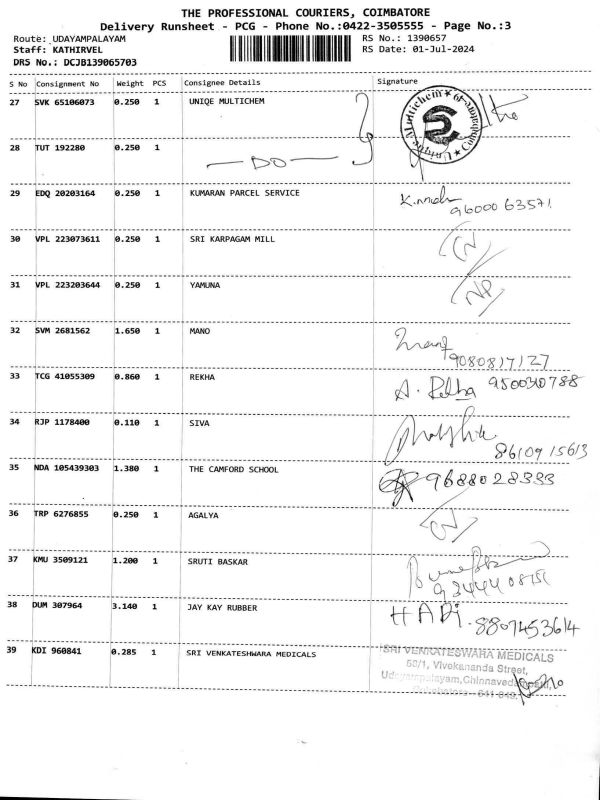 THE PROFESSIONAL COURIERS, COIMBATORE
Delivery Runsheet - PCG - Phone No.:0422-3505555 - Page No.:3
Route: UDAYAMPALAYAM RS No.: 1390657
Staff: KATHIRVEL RS Date: 01-Jul-2024
DRS No.: DCJB139065703
S No Consignment No Weight PCS Consignee Details Signature
27 SVK 65106073 0.250 1 UNIQE MULTICHEM
28 TUT 192280 0.250 1 —DO—
29 EDQ 20203164 0.250 1 KUMARAN PARCEL SERVICE
9600063571
30 VPL 223073611 0.250 1 SRI KARPAGAM MILL
31 VPL 223203644 0.250 1 YAMUNA
32 SVM 2681562 1.650 1 MANO
9080817127
33 TCG 41055309 0.860 1 REKHA A. Rekha
34 RJP 1178400 0.110 1 SIVA
8610915613
35 NDA 105439303 1.380 1 THE CAMFORD SCHOOL 9688028333
36 TRP 6276855 0.250 1 AGALYA
37 KMU 3509121 1.200 1 SRUTI BASKAR
38 DUM 307964 3.140 1 JAY KAY RUBBER HADI. 8807453614
39 KDI 960841 0.285 1 SRI VENKATESHWARA MEDICALS
SRI VENKATESWARA MEDICALS
50/1, Vivekananda Street,
Udayampalayam, Chinnavedampatti,